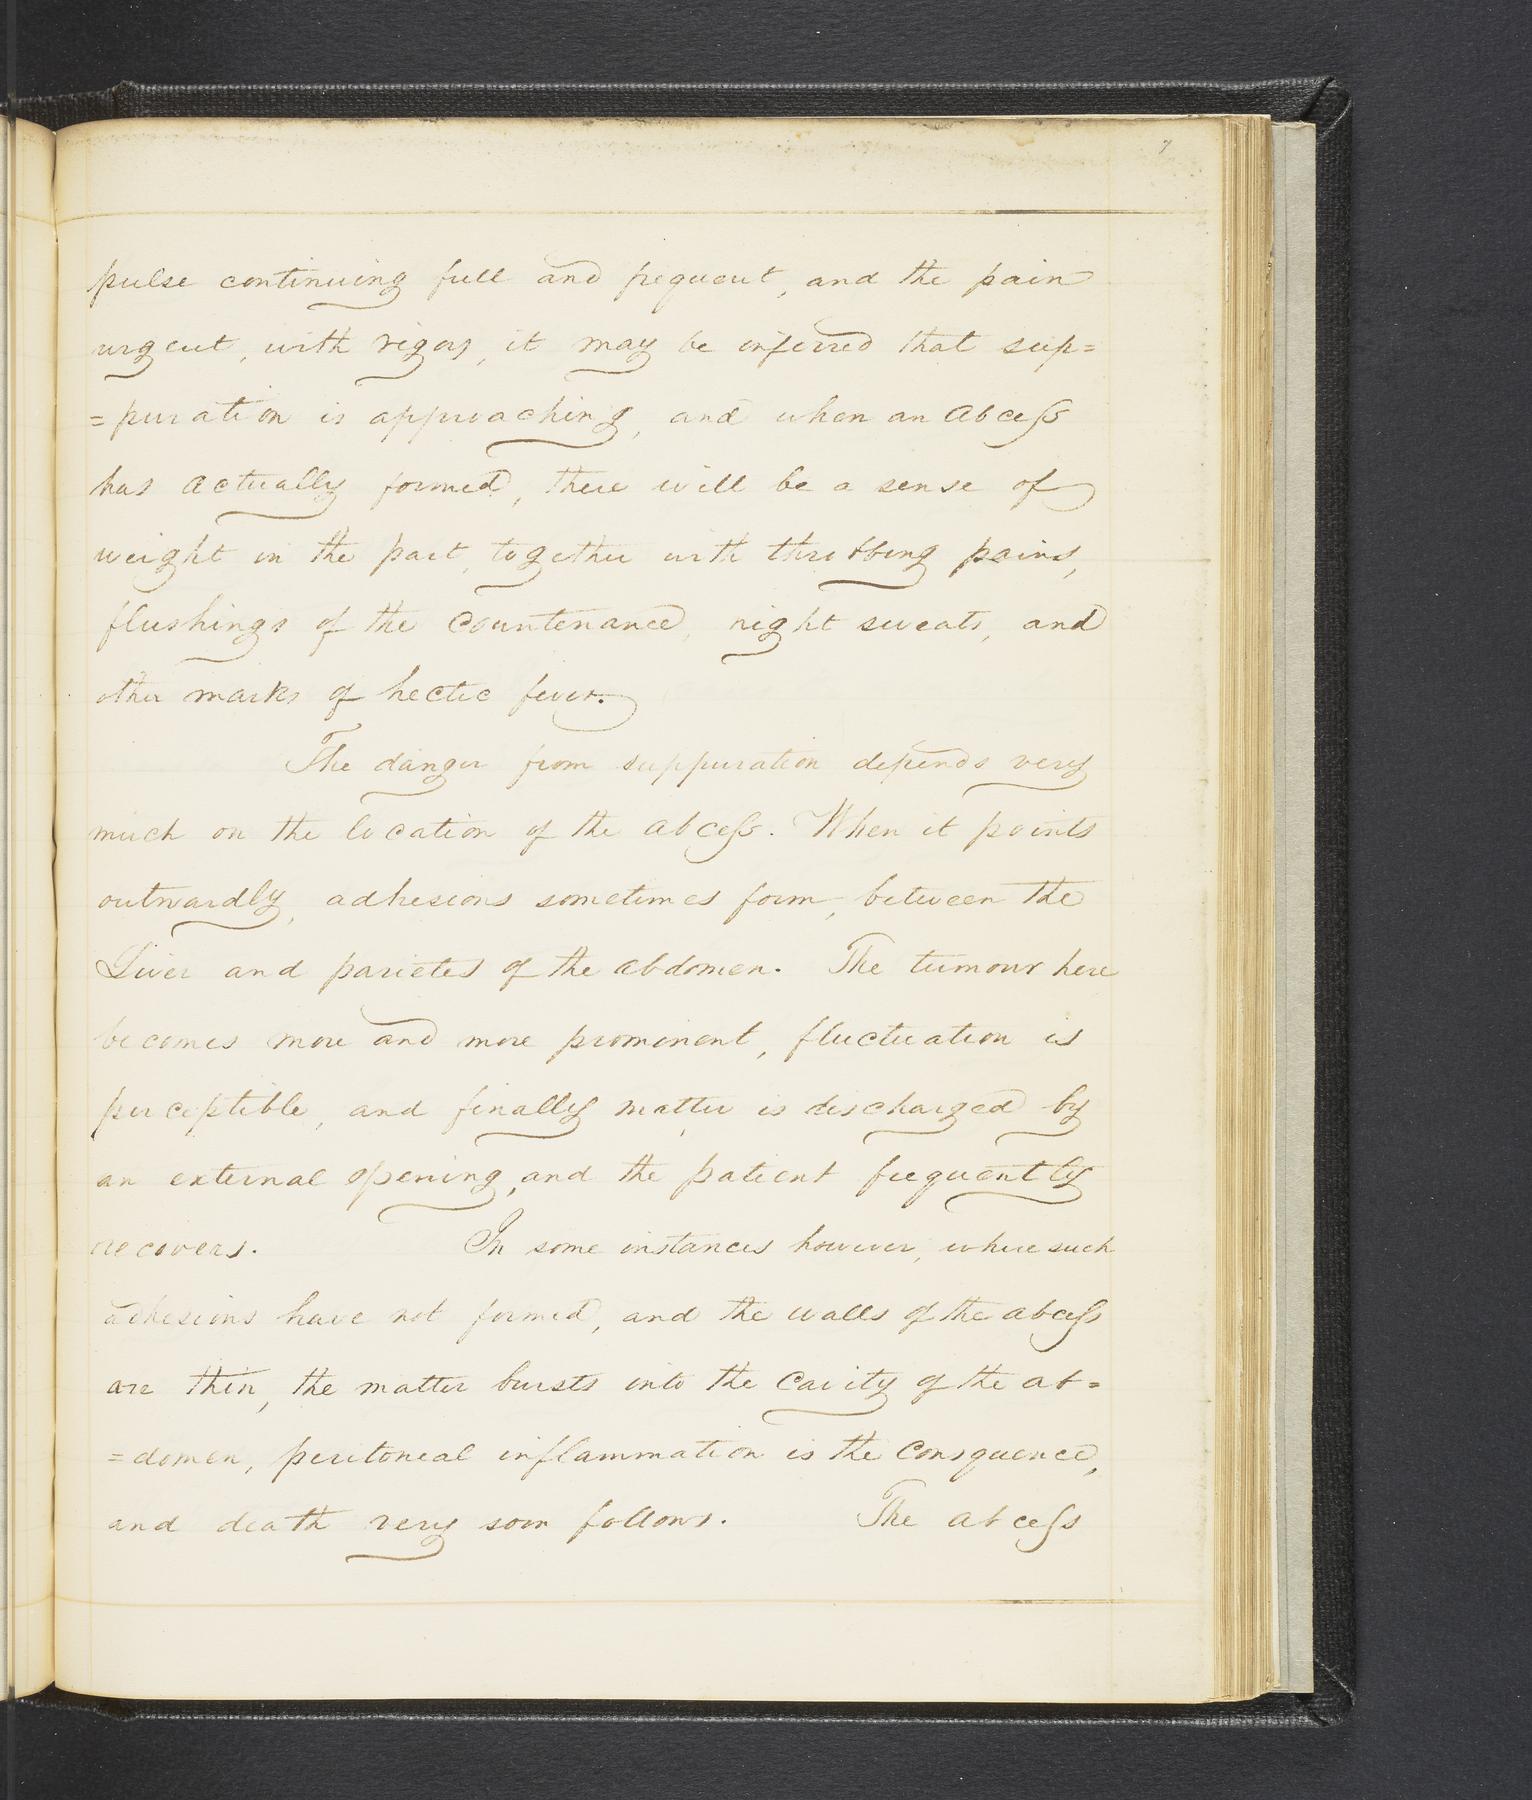 7
pulse continuing full and frequent, and the pain
urgent, with rigors, it may be inferred that sup=
=puration is approaching, and when an abcess
has actually formed, there will be a sense of
weight in the part, together with throbbing pains,
flushings of the countenance, night sweats, and
other marks of hectic fever.
The danger from suppuration depends very
much on the location of the abcess. When it points
outwardly, adhesions sometimes form, between the
Liver and parietes of the abdomen. The tumour here
becomes more and more prominent, fluctuation is
perceptible, and finally matter is discharged by
an external opening, and the patient frequently
recovers. In some instances however, where such
adhesions have not formed, and the walls of the abcess
are thin, the matter bursts into the cavity of the ab=
=domen, peritoneal inflammation is the consquence,
and death very soon follows. The abcess